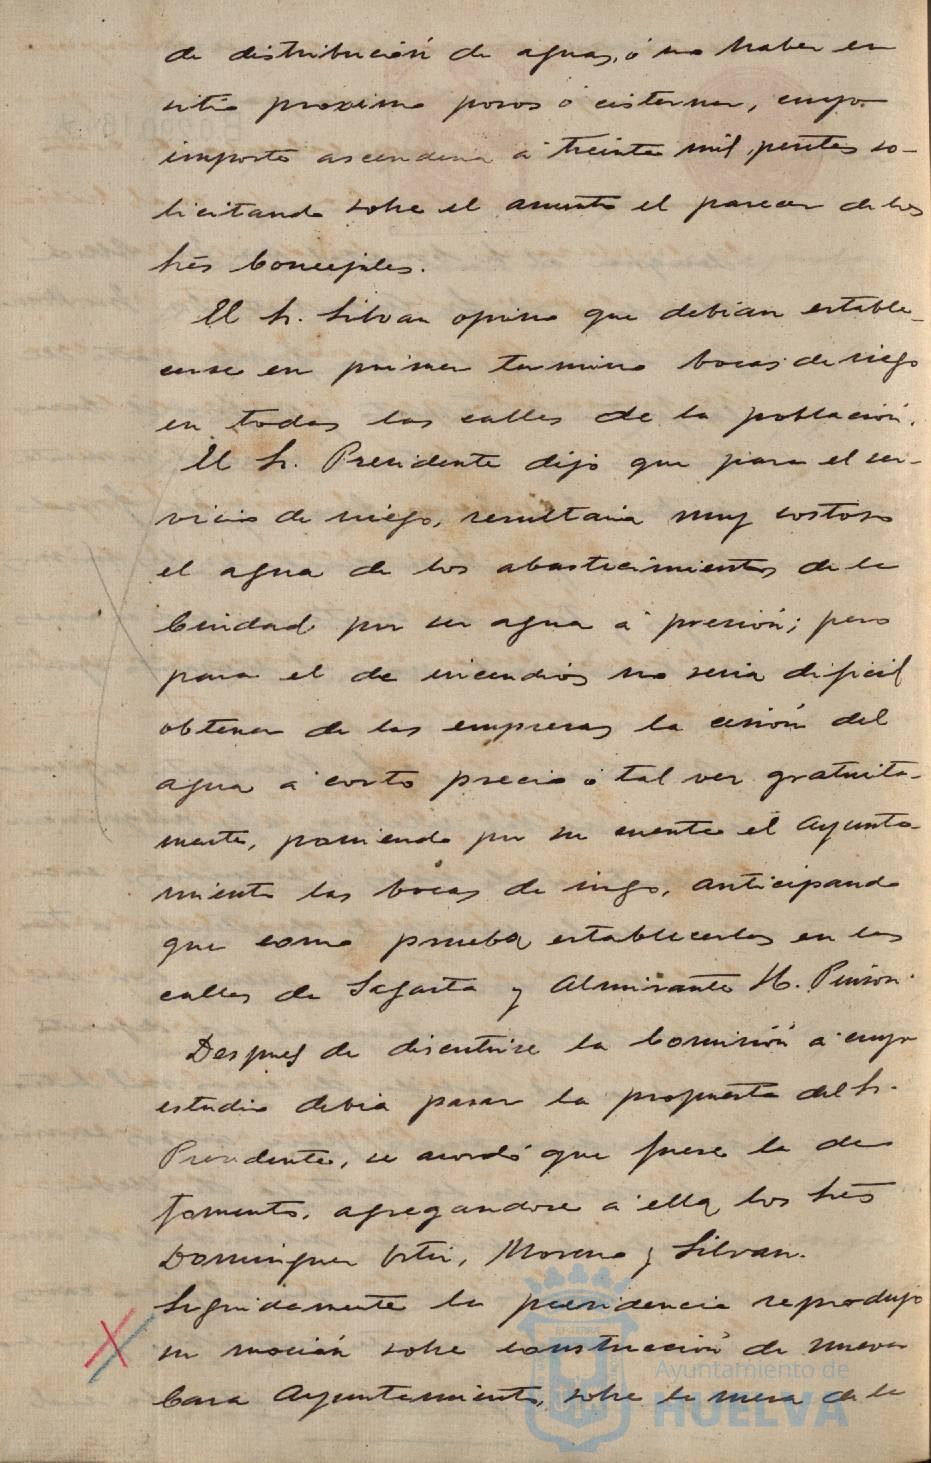 de distribución de aguas, ó no haber en
sitio proximo pozos ó cisternas, cuyo
importe ascenderia á treinta mil pesetas so-
licitando sobre el asunto el parecer de los
Sres Concejales.
El Sr. Silvan opino que debian estable-
cerse en primer termino bocas de riego
en todas las calles de la población.
El Sr. Presidente dijo que para el ser-
vicio de riego, resultaria muy costoso
el agua de los abastecimientos de la
Ciudad por ser agua á presión; pero
para el de incendios no seria dificil
obtener de las empresas la cesión del
agua á corto precio ó tal vez gratuita-
mente, poniendo por su cuenta el Ayunta-
miento las bocas de riego, anticipando
que como prueba establecerlas en las
calles de Sagasta y Almirante H. Pinzón.
Despues de discutirse la Comisión á cuyo
estudio debia pasar la propuesta del Sr.
Presidente, se acordó que fuese la de
fomento, agregandose á ella los Sres
Dominguez Ortiz, Moreno y Silvan.
Seguidamente la presidencia reprodujo
su moción sobre construcción de nueva
Casa Ayuntamiento, sobre la mesa de la
Ayuntamiento de
HUELVA